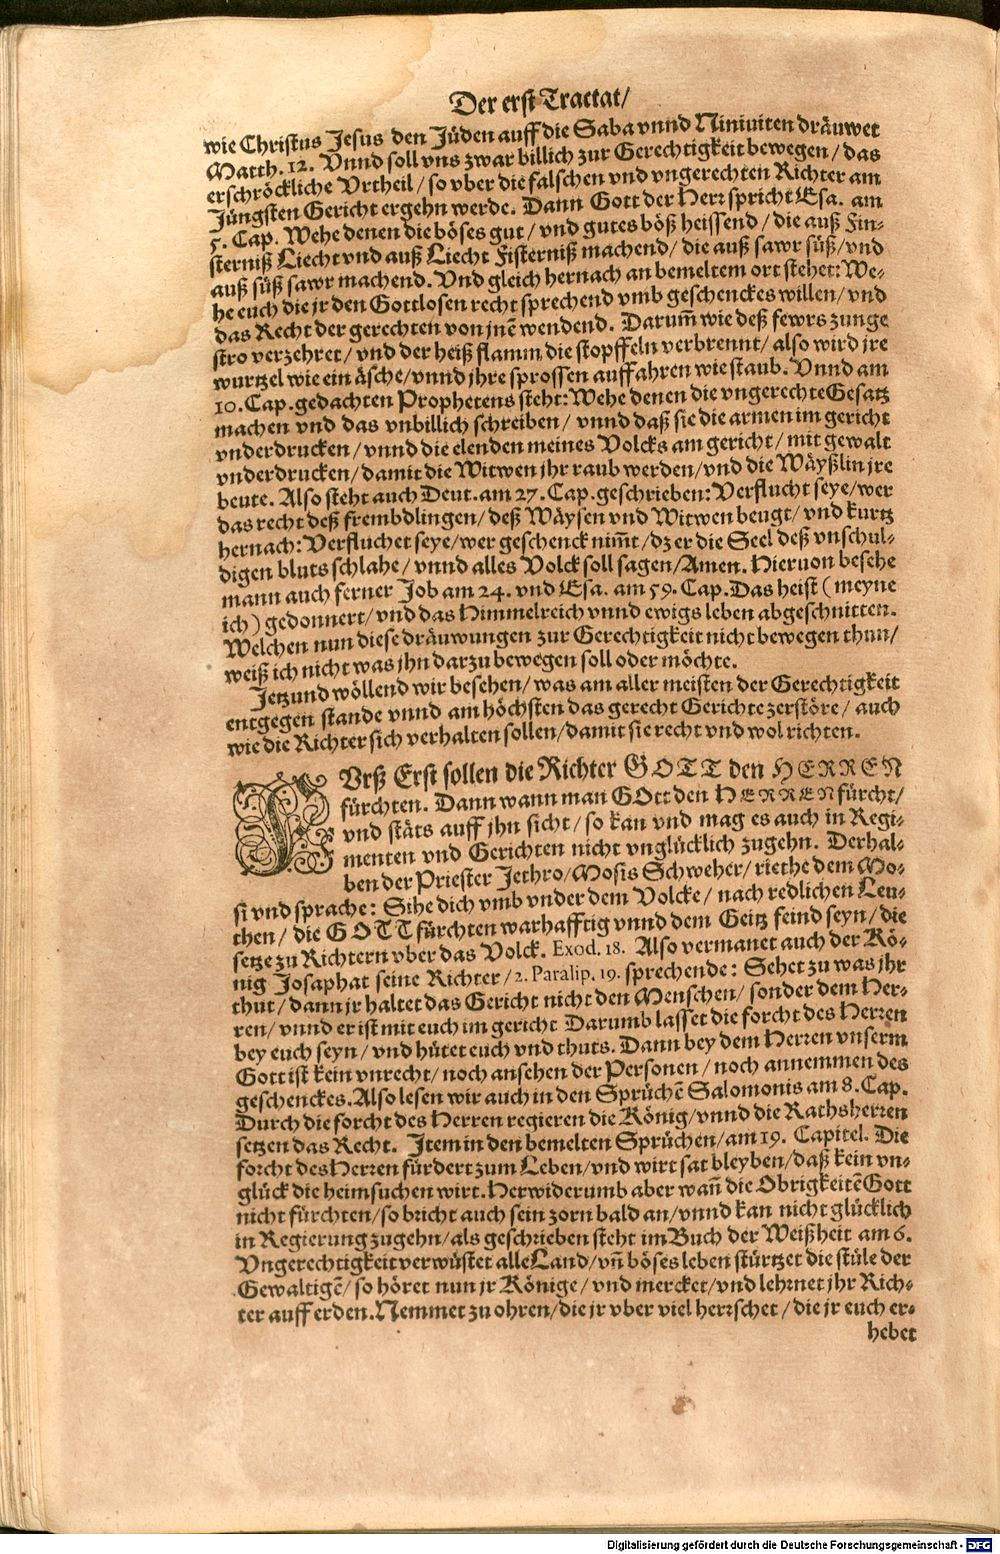 Der erst Tractat/
wie Christus Jesus den Jüden auff die Saba vnnd Niniuiten dräuwet
Matth. 12. Vnnd soll vns zwar billich zur Gerechtigkeit bewegen/ das
erschröckliche Vrtheil/ so vber die falschen vnd vngerechten Richter am
Jüngsten Gericht ergehn werde. Dann Gott der Herr spricht Esa. am
5. Cap. Wehe denen die böses gut/ vnd gutes böß heissend/ die auß Fin-
sterniß Liecht vnd auß Liecht Fisterniß machend/ die auß sawr süß/ vnd
auß süß sawr machend. Vnd gleich hernach an bemeltem ort stehet: We-
he euch die jr den Gottlosen recht sprechend vmb geschenckes willen/ vnd
das Recht der gerechten von jnē wendend. Darum̄ wie deß fewrs zunge
stro verzehret/ vnd der heiß flamm die stopffeln verbrennt/ also wird jre
wurtzel wie ein äsche/ vnnd jhre sprossen auffahren wie staub. Vnnd am
10. Cap. gedachten Prophetens steht: Wehe denen die vngerechte Gesatz
machen vnd das vnbillich schreiben/ vnnd daß sie die armen im gericht
vnderdrucken/ vnnd die elenden meines Volcks am gericht/ mit gewalt
vnderdrucken/ damit die Witwen jhr raub werden/ vnd die Wäyßlin jre
beute. Also steht auch Deut. am 27. Cap. geschrieben: Verflucht seye/ wer
das recht deß frembdlingen/ deß Wäysen vnd Witwen beugt/ vnd kurtz
hernach: Verfluchet seye/ wer geschenck nim̄t/ dz er die Seel deß vnschul-
digen bluts schlahe/ vnnd alles Volck soll sagen/ Amen. Hieruon besehe
mann auch ferner Job am 24. vnd Esa. am 59. Cap. Das heist (meyne
ich) gedonnert/ vnd das Himmelreich vnnd ewigs leben abgeschnitten.
Welchen nun diese dräuwungen zur Gerechtigkeit nicht bewegen thun/
weiß ich nicht was jhn darzu bewegen soll oder möchte.
Jetzund wöllend wir besehen/ was am aller meisten der Gerechtigkeit
entgegen stande vnnd am höchsten das gerecht Gerichte zerstöre/ auch
wie die Richter sich verhalten sollen/ damit sie recht vnd wol richten.
FVrß Erst sollen die Richter GOTT den HERREN
fürchten. Dann wann man GOtt den HERREN fürcht/
vnd stäts auff jhn sicht/ so kan vnd mag es auch in Regi-
menten vnd Gerichten nicht vnglücklich zugehn. Derhal-
ben der Priester Jethro/ Mosis Schweher/ riethe dem Mo-
si vnd sprache: Sihe dich vmb vnder dem Volcke/ nach redlichen Leu-
then/ die GOTT fürchten warhafftig vnnd dem Geitz feind seyn/ die
setze zu Richtern vber das Volck. Exod. 18. Also vermanet auch der Kö-
nig Josaphat seine Richter/ 2. Paralip. 19. sprechende: Sehet zu was jhr
thut/ dann jr haltet das Gericht nicht den Menschen/ sonder dem Her-
ren/ vnnd er ist mit euch im gericht Darumb lasset die forcht des Herren
bey euch seyn/ vnd hütet euch vnd thuts. Dann bey dem Herren vnserm
Gott ist kein vnrecht/ noch ansehen der Personen/ noch annemmen des
geschenckes. Also lesen wir auch in den Sprüchē Salomonis am 8. Cap.
Durch die forcht des Herren regieren die König/ vnnd die Rathsherren
setzen das Recht. Jtem in den bemelten Sprüchen/ am 19. Capitel. Die
forcht des Herren fürdert zum Leben/ vnd wirt sat bleyben/ daß kein vn-
glück die heimsuchen wirt. Herwiderumb aber wañ die Obrigkeitē Gott
nicht fürchten/ so bricht auch sein zorn bald an/ vnnd kan nicht glücklich
in Regierung zugehn/ als geschrieben steht im Buch der Weißheit am 6.
Vngerechtigkeit verwüstet alle Land/ vñ böses leben stürtzet die stüle der
Gewaltigē/ so höret nun jr Könige/ vnd mercket/ vnd lehrnet jhr Rich-
ter auff erden. Nemmet zu ohren/ die jr vber viel herrschet/ die jr euch er-
hebet
Digitalisierung gefördert durch die Deutsche Forschungsgemeinschaft - DFG